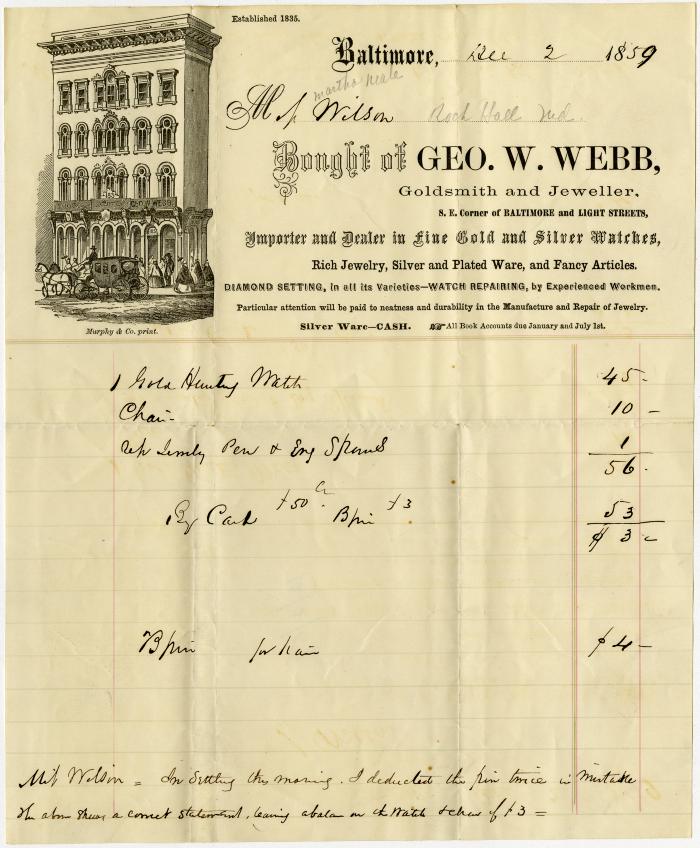 Established 1835.
Baltimore, Dec 2 1859
martha neale
Miss Wilson Rock Hall Md.
Bought of GEO. W. WEBB,
Goldsmith and Jeweller,
S. E. Corner of BALTIMORE and LIGHT STREETS,
Importer and Dealer in Fine Gold and Silver Watches,
Rich Jewelry, Silver and Plated Ware, and Fancy Articles.
DIAMOND SETTING, in all its Varieties—WATCH REPAIRING, by Experienced Workmen.
Particular attention will be paid to neatness and durability in the Manufacture and Repair of Jewelry.
Silver Ware—CASH. All Book Accounts due January and July 1st.
GEO. W. WEBB.
Murphy & Co. print.
1 Gold Hunting Watch 45-
Chain 10-
Pen & Eng Spoons 1
56-
By Cash $50 Bpin $3 53
$3-
Bpin for hair $4-
Miss Wilson = In Settling this morning, I deducted the pin twice in mistake
the above shows a correct statement, leaving a balan on the Watch & chain of $3 =